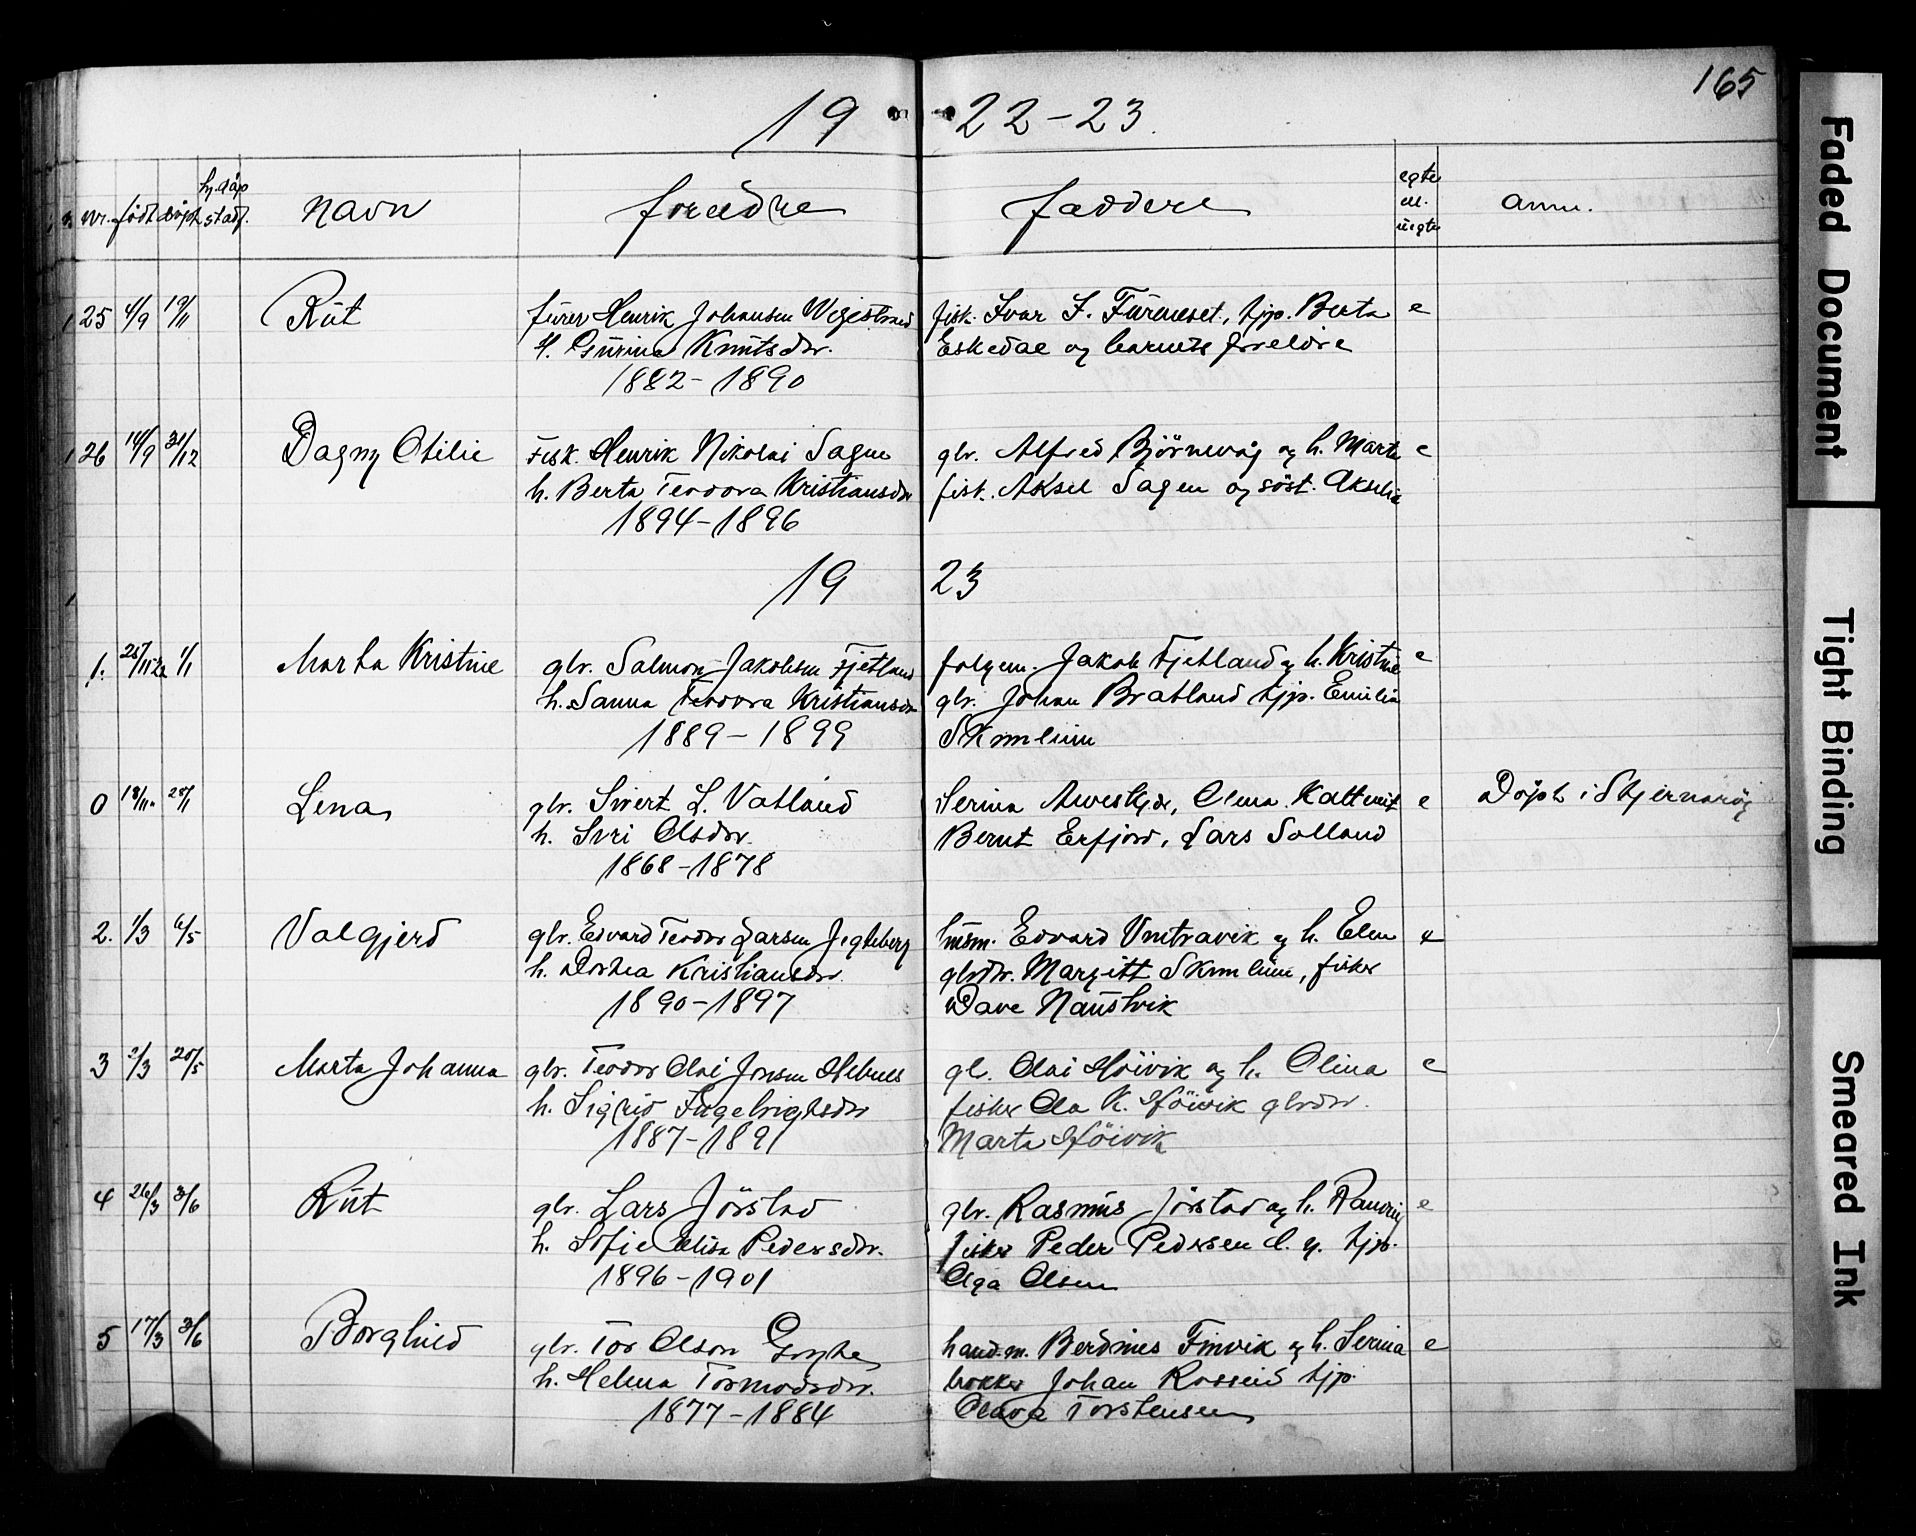 165
19 22-23
nr. født døpt hj.dåp stadf. Navn foreldre faddere egte el. uegte anm.
25 4/9 19/11 Rut fürer Henrik Johansen
h. Gurine Knutsdtr.
1882-1890
fisk. Ivar I. Fureneset, tjp. Berta e
Eskedal og barnets foreldre
26 14/9 31/12 Dagny Otilie fisk. Henrik Nikolai Sagen
h. Berta Teodora Kristiansdtr
1894-1896
gbr. Alfred Bjørnevåg og h. Marta e
fisk. Aksel Sagen og søst. Akselia
19 23
1. 25/11-22 1/1 Marta Kristine gbr. Salmon Jakobsen Fjetland
h. Sanna Teodora Kristiansdtr
1889-1899
folgem. Jakob Fjetland og h. Kristine e
gbr. Johan Bratland tjp. Emilia
0 18/11 28/1 Lena gbr. Sivert L. Vatland
h. Siri Olsdtr.
1868-1878
Serina Olena e
Bernt Erfjord, Lars Solland
Døpt i Stjernarøy
2. 1/3 6/5 Valgjerd gbr. Edvard Teodor Larsen Jegteberg
h. Dortea Kristiansdtr.
1890-1897
husm. Edvard og h. Elen e
gbrdtr. Margitt fisker
Dave Naustvik
3 2/3 20/5 Marta Johanna gbr. Teodor Olai Jonsen Hebnes
h. Sigrid Ingebrigtsdtr
1887-1891
gb. Olai Høivik og h. Olina e
fisker Ola K. Høivik gbrdtr.
Marta Høivik
4 26/3 3/6 Rut gbr. Lars Jørstad
h. Sofie Elisa Pedersdtr.
1896-1901
gbr. Rasmus Jørstad og h. Randvig e
fisker Peder Pedersen d. y. tjp.
Olga Olsen
5 17/3 3/6 Borghild gbr. Tor Olson
h. Helena Tormodsdtr.
1877-1884
hand.m. Berdines Finvik og h. Serina e
bøkker Johan Rosseid tjp.
Olava Torstensen
Faded Document
Tight Binding
Smeared Ink